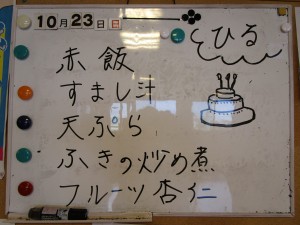 10月23日 日
ひる
赤飯
すまし汁
天ぷら
ふきの炒め煮
フルーツ杏仁